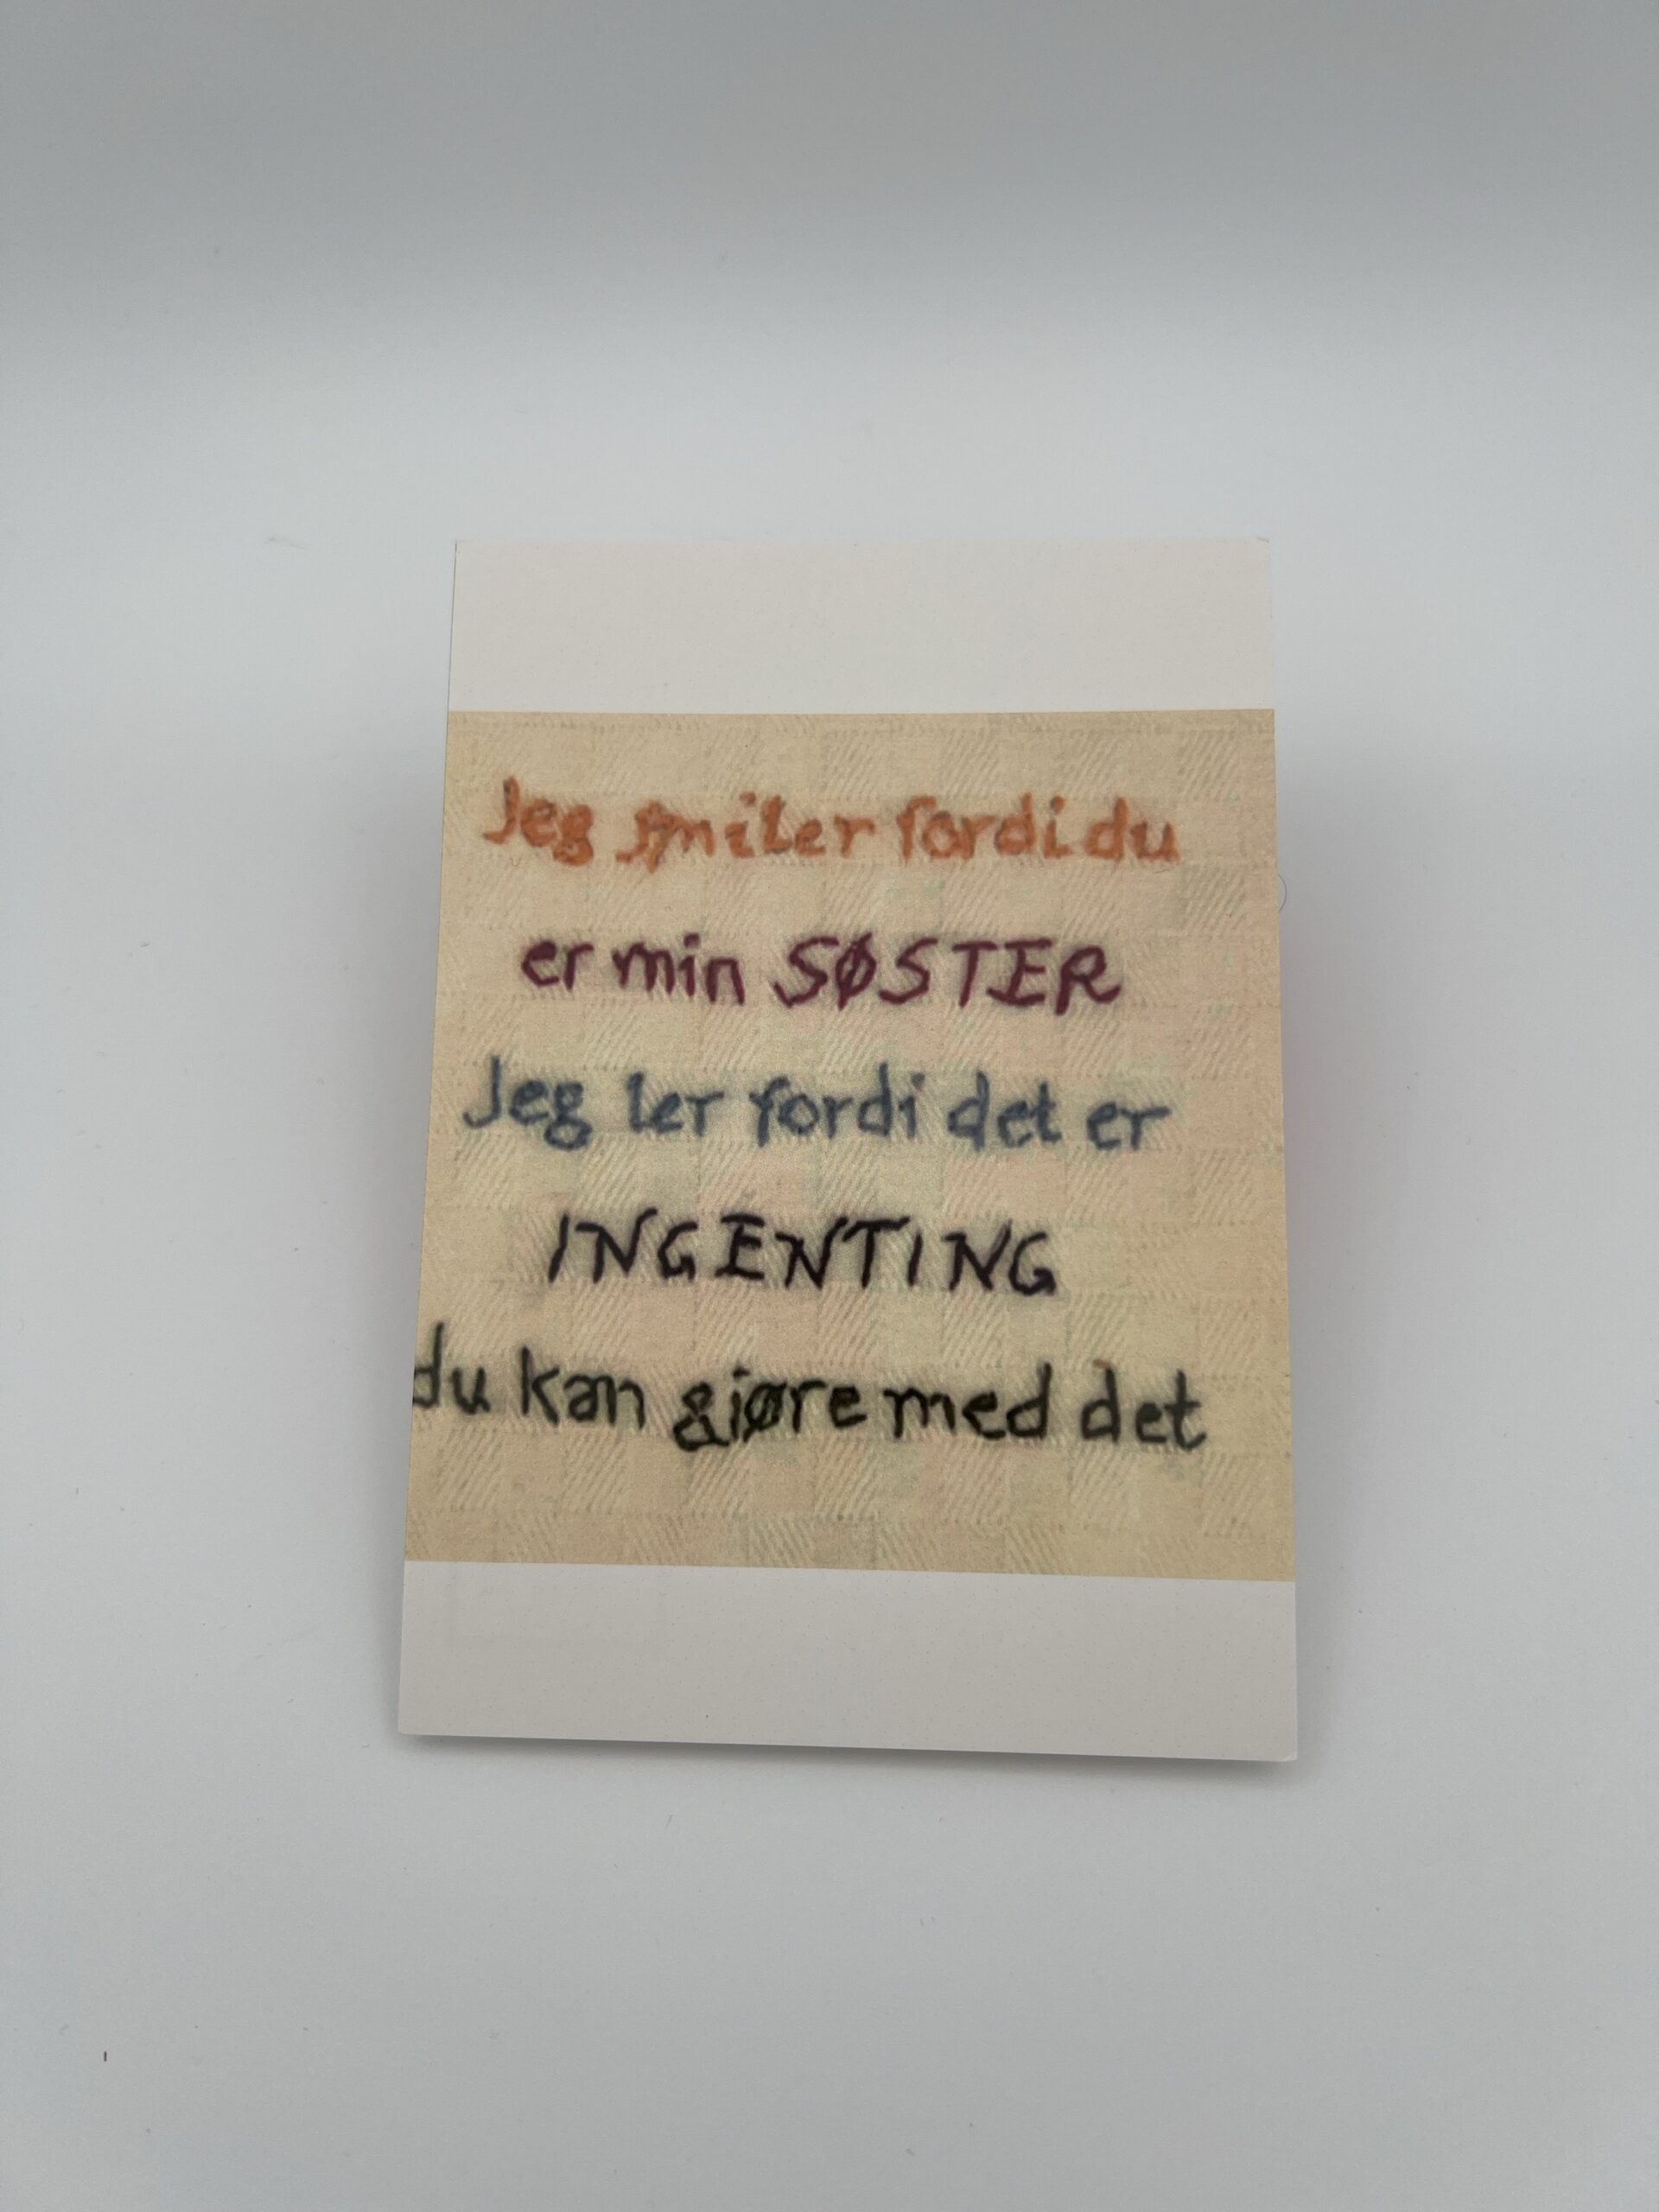 Jeg smiler fordi du
er min SØSTER
Jeg ler fordi det er
INGENTING
du kan gjøre med det